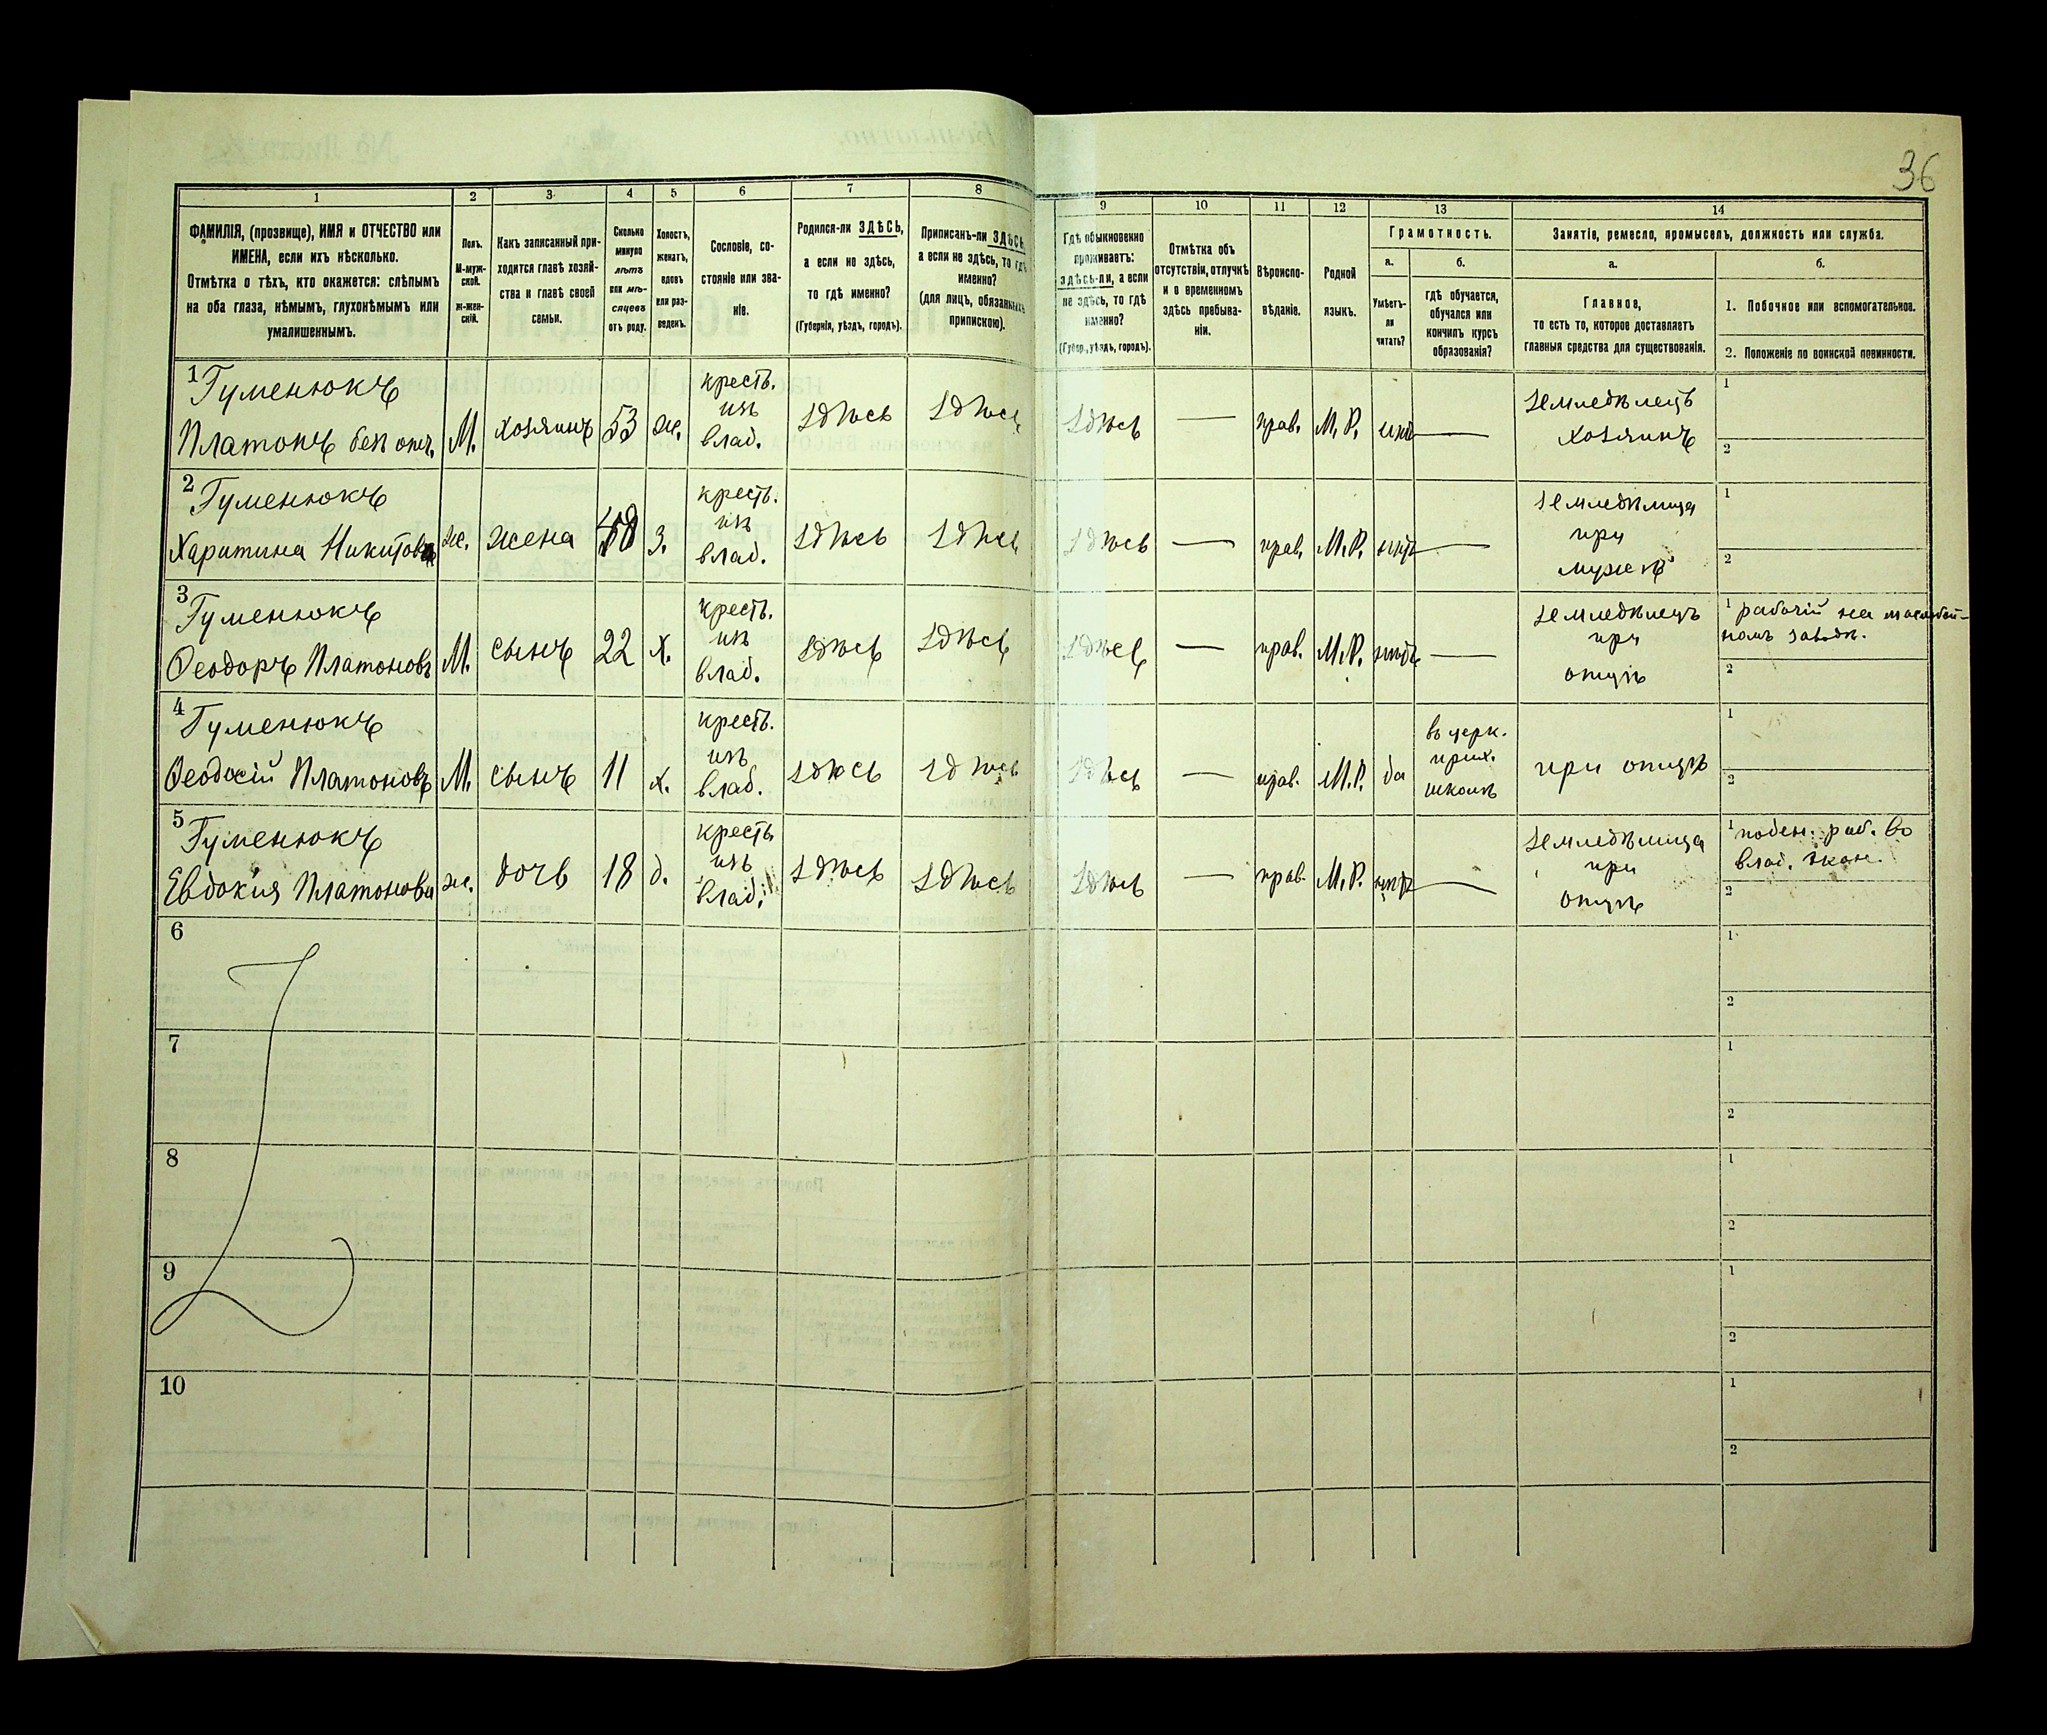 36
1 2 3 4 5 6 7 8 9 10 11 12 13 14
ФАМИЛІЯ, (прозвище), ИМЯ и ОТЧЕСТВО или
ИМЕНА, если ихъ нѣсколько.
Отмѣтка о тѣхъ, кто окажется: слѣпымъ
на оба глаза, нѣмымъ, глухонѣмымъ или
умалишеннымъ.
Полъ.
М-муж-
ской.
ж-жен-
скій.
Какъ записанный при-
ходится главѣ хозяй-
ства и главѣ своей
семьи.
Сколько
минуло
лѣтъ
или мѣ-
сяцевъ
отъ роду.
Холостъ,
женатъ,
вдовъ
или раз-
веденъ.
Сословіе, со-
стояніе или зва-
ніе.
Родился-ли ЗДѢСЬ,
а если не здѣсь,
то гдѣ именно?
(Губернія, уѣздъ, городъ).
Приписанъ-ли ЗДѢСЬ,
а если не здѣсь, то гдѣ
именно?
(для лицъ, обязанныхъ
припискою).
Гдѣ обыкновенно
проживаетъ:
здѣсь-ли, а если
не здѣсь, то гдѣ
именно?
(Губер., уѣздъ, городъ).
Отмѣтка объ
отсутствіи, отлучкѣ
и о временномъ
здѣсь пребыва-
ніи.
Вѣроиспо-
вѣданіе.
Родной
языкъ.
Грамотность.
а.
Умѣетъ-
ли
читать?
б.
гдѣ обучается,
обучался или
кончилъ курсъ
образованія?
Занятіе, ремесло, промыселъ, должность или служба.
а.
Главное,
то есть то, которое доставляетъ
главныя средства для существованія.
б.
1. Побочное или вспомогательное.
2. Положеніе по воинской повинности.
1 Гуменюкъ
Платонъ без отч.
М.
хозяинъ
53
ж.
кресть.
изъ
влад.
здѣсь
здѣсь
здѣсь
—
прав.
М. Р.
нѣтъ
—
земледѣлецъ
хозяинъ
1
2
2 Гуменюкъ
Харитина Никитова
ж.
жена
48
з.
кресть.
изъ
влад.
здѣсь
здѣсь
здѣсь
—
прав.
М. Р.
нѣтъ
—
земледѣлица
при
мужѣ
1
2
3 Гуменюкъ
Ѳеодоръ Платоновъ
М.
сынъ
22
х.
кресть.
изъ
влад.
здѣсь
здѣсь
здѣсь
—
прав.
М. Р.
нѣтъ
—
земледѣлецъ
при
отцѣ
1 рабочій на маслобой-
номъ завод.
2
4 Гуменюкъ
Ѳеодосій Платоновъ
М.
сынъ
11
х.
кресть.
изъ
влад.
здѣсь
здѣсь
здѣсь
—
прав.
М. Р.
да
въ церк.
прих.
школѣ
при отцѣ
1
2
5 Гуменюкъ
Евдокія Платонова
ж.
дочь
18
д.
кресть.
изъ
влад.
здѣсь
здѣсь
здѣсь
—
прав.
М. Р.
нѣтъ
—
земледѣлица
при
отцѣ
1 поден. раб. во
влад. экон.
2
6
1
2
7
1
2
8
1
2
9
1
2
10
1
2